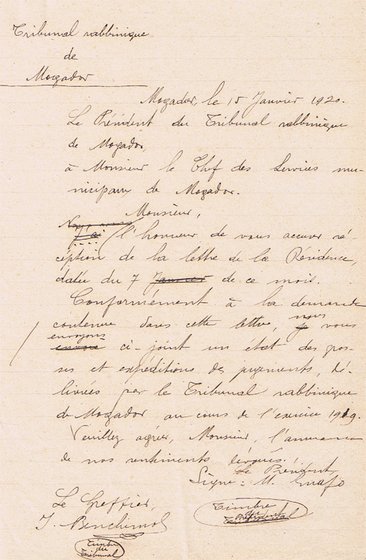 Tribunal rabbinique
de
Mogador
Mogador, le 15 Janvier 1920.
Le Président du Tribunal rabbinique
de Mogador
à Monsieur le Chef des Services mu-
nicipaux de Mogador.
Monsieur,
Nous avons
J'ai l'honneur de vous accuser ré-
ception de la lettre de la Résidence,
datée du 7 Janvier de ce mois.
Conformément à la demande
contenue dans cette lettre, nous vous
envoyons
ci-joint un état des gros-
ses et expéditions de jugements, dé-
livrées par le Tribunal rabbinique
de Mogador au cours de l'exercice 1919.
Veuillez agréer, Monsieur, l'assurance
de nos sentiments dévoués.
Le Président
Signé: M.
Le Greffier,
J.
Timbre
Timbre
du
Tribunal